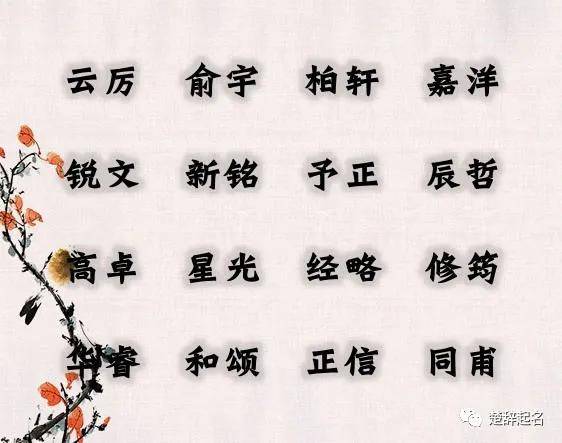 云厉 俞宇 柏轩 嘉洋
锐文 新铭 予正 辰哲
高卓 星光 经略 修筠
华睿 和颂 正信 同甫
楚辞起名